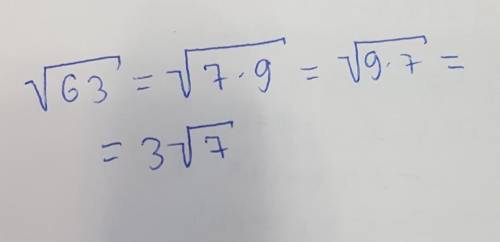 √63 = √7·9 = √9·7 =
= 3√7